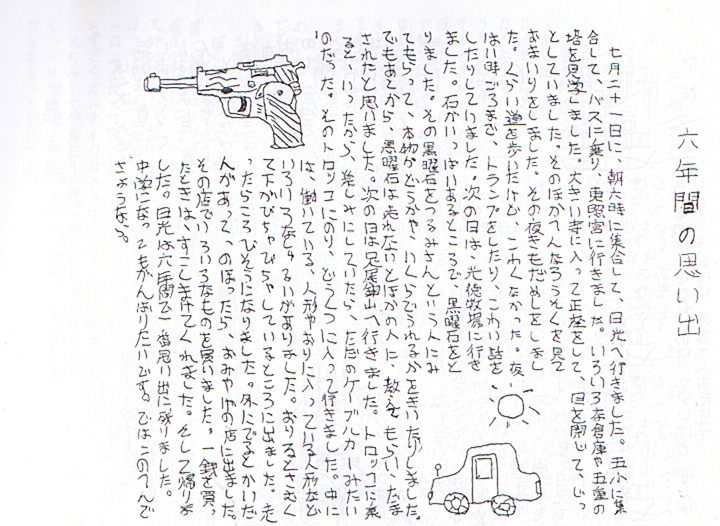 六年間の思い出
七月二十一日に、朝六時に集合して、日光へ行きました。五小に集
合して、バスに乗り、東照宮に行きました。いろいろな倉庫や五重の
塔を見学しました。大きい寺に入って正座をして、目を閉じて、じっ
としていました。そのほかへんなろうえくを見て
おまいりをしました。その夜きもだめしをしまし
た。くらい道を歩いたけど、こわくなかった。夜
はい時ごろまで、トランプをしたり、こわい話を
したりしていました。次の日は、光徳牧場に行き
ました。石がいっぱいあるところで、黒曜石をと
りました。その黒曜石をつるみさんという人にみ
てもらって、本物かどうかや、いくらでうれるかをきいたりしました。
でもあとから、黒曜石は売れないとほかの人に、教えてもらい、だま
されたと思いました。次の日は足尾銅山へ行きました。トロッコに乗
ると、いったから、楽しみにしていたら、ただのケーブルカーみたい
のだった。そのトロッコにのり、どうくつに入って行きました。中に
は、働いている、人形やおりに入っている人形など
いろいろなしゅるいがありました。おりるとさむく
て下がびちゃびちゃしているところに出ました。走
ったらころびそうになりました。外にでるとかいだ
んがあって、のぼったら、おみやげの店に出ました。
その店でいろいろなものを買いました。一銭を買っ
たときは、すこしまけてくれました。そして帰りま
した。日光は六年間で一番思い出に残りました。
中学になってもがんばりたいです。ではこのへんで
さようなら。